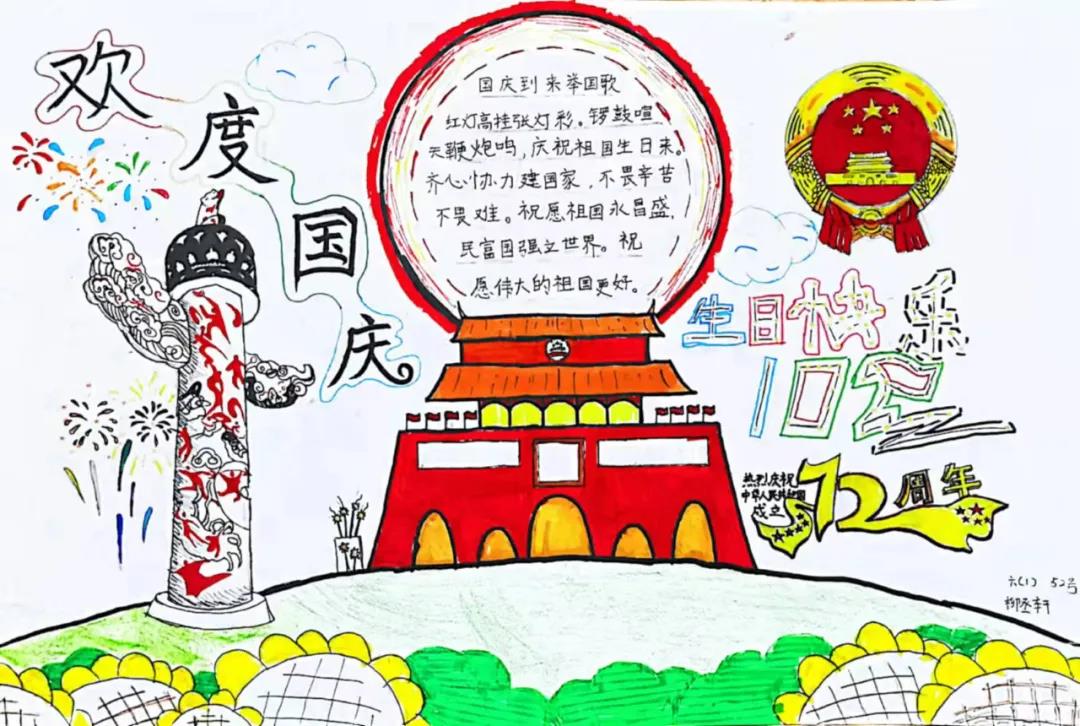 欢度国庆
国庆到来举国歌
红灯高挂张灯彩。锣鼓喧
天鞭炮鸣，庆祝祖国生日来。
齐心协力建国家，不畏辛苦
不畏难。祝愿祖国永昌盛，
民富国强立世界。祝
愿伟大的祖国更好。
生日快乐
热烈庆祝
中华人民共和国
成立
72周年
六(1) 52号
柳丞轩